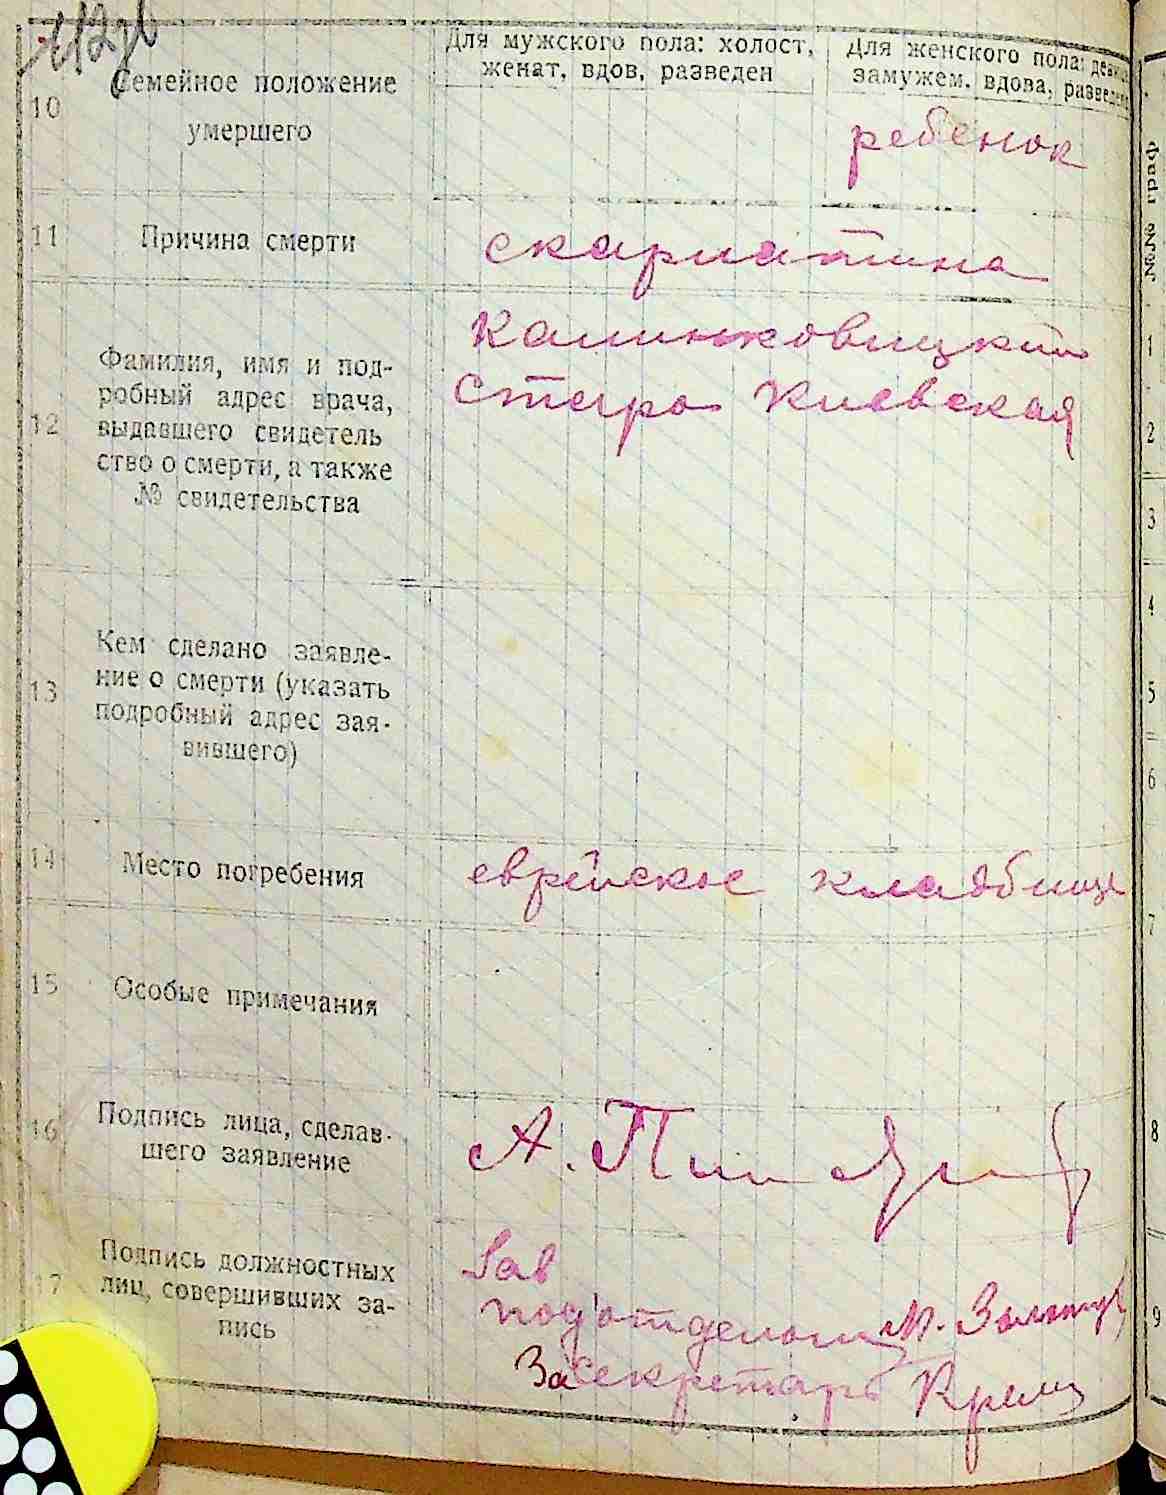 10
Семейное положение
умершего
Для мужского пола: холост,
женат, вдов, разведен
Для женского пола:
замужем. вдова,
ребенок
11
Причина смерти
скарлатина
12
Фамилия, имя и под-
робный адрес врача,
выдавшего свидетель
ство о смерти, а также
№ свидетельства
Калинковицкий
Старо Киевская
13
Кем сделано заявле-
ние о смерти (указать
подробный адрес зая-
вившего)
14
Место погребения
еврейское кладбище
15
Особые примечания
16
Подпись лица, сделав-
шего заявление
А.
17
Подпись должностных
лиц, совершивших за-
пись
Зав
под'отделом М.
За секретарь
№№ граф
1
2
3
4
5
6
7
8
9